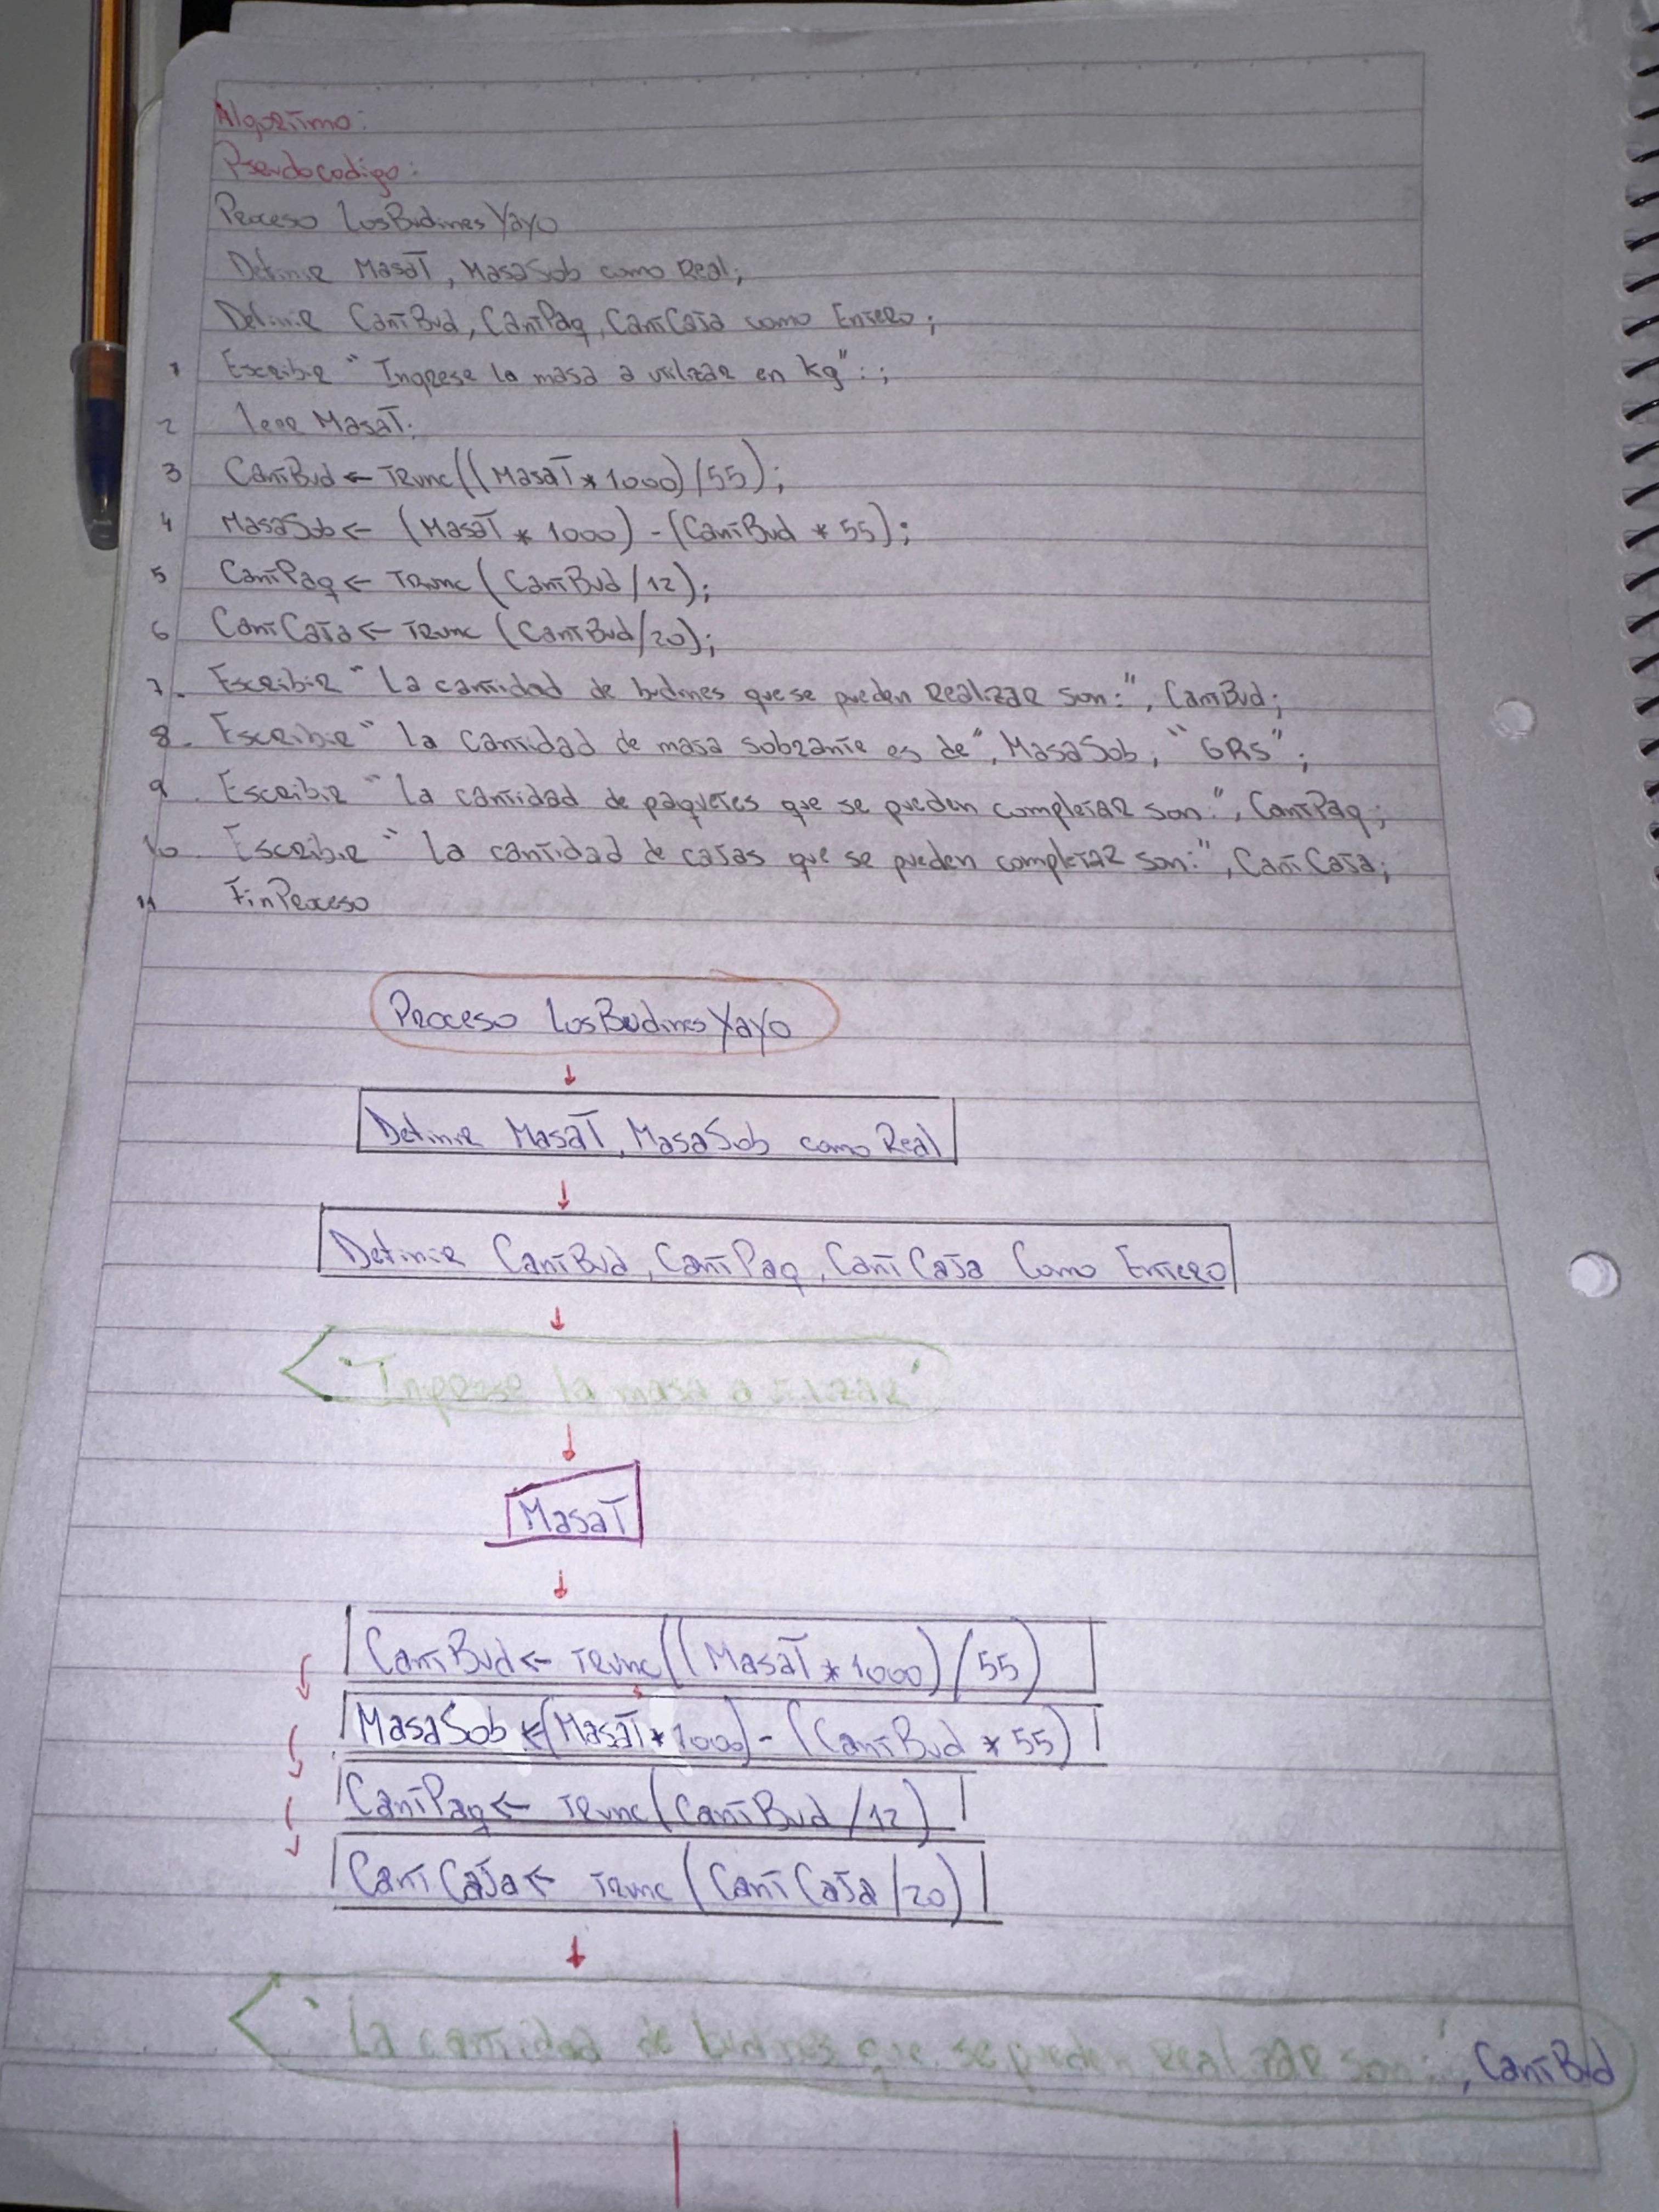 Algoritmo:
Pseudocodigo:
Proceso LosBudinesYayo
Definir MasaT, MasaSob como Real;
Definir CantBud, CantPaq, CantCaja como Entero;
1 Escribir "Ingrese la masa a utilizar en kg":;
2 leer MasaT;
3 CantBud ← Trunc((MasaT * 1000)/55);
4 MasaSob ← (MasaT * 1000) - (CantBud * 55);
5 CantPaq ← Trunc (CantBud/12);
6 CantCaja ← Trunc (CantBud/20);
7. Escribir "La cantidad de budines que se pueden realizar son:", CantBud;
8. Escribir "la cantidad de masa sobrante es de", MasaSob, "GRS";
9. Escribir "la cantidad de paquetes que se pueden completar son:", CantPaq;
10 Escribir "la cantidad de cajas que se pueden completar son:", CantCaja;
11 FinProceso
Proceso LosBudinesYayo
Definir MasaT, MasaSob como Real
Definir CantBud, CantPaq, CantCaja Como Entero
"Ingrese la masa a utilizar"
MasaT
CantBud ← Trunc((MasaT * 1000)/55)
MasaSob ← (MasaT * 1000) - (CantBud * 55)
CantPaq ← Trunc (CantBud /12)
CantCaja ← Trunc (CantCaja /20)
"La cantidad de budines que se pueden realizar son:", CantBud